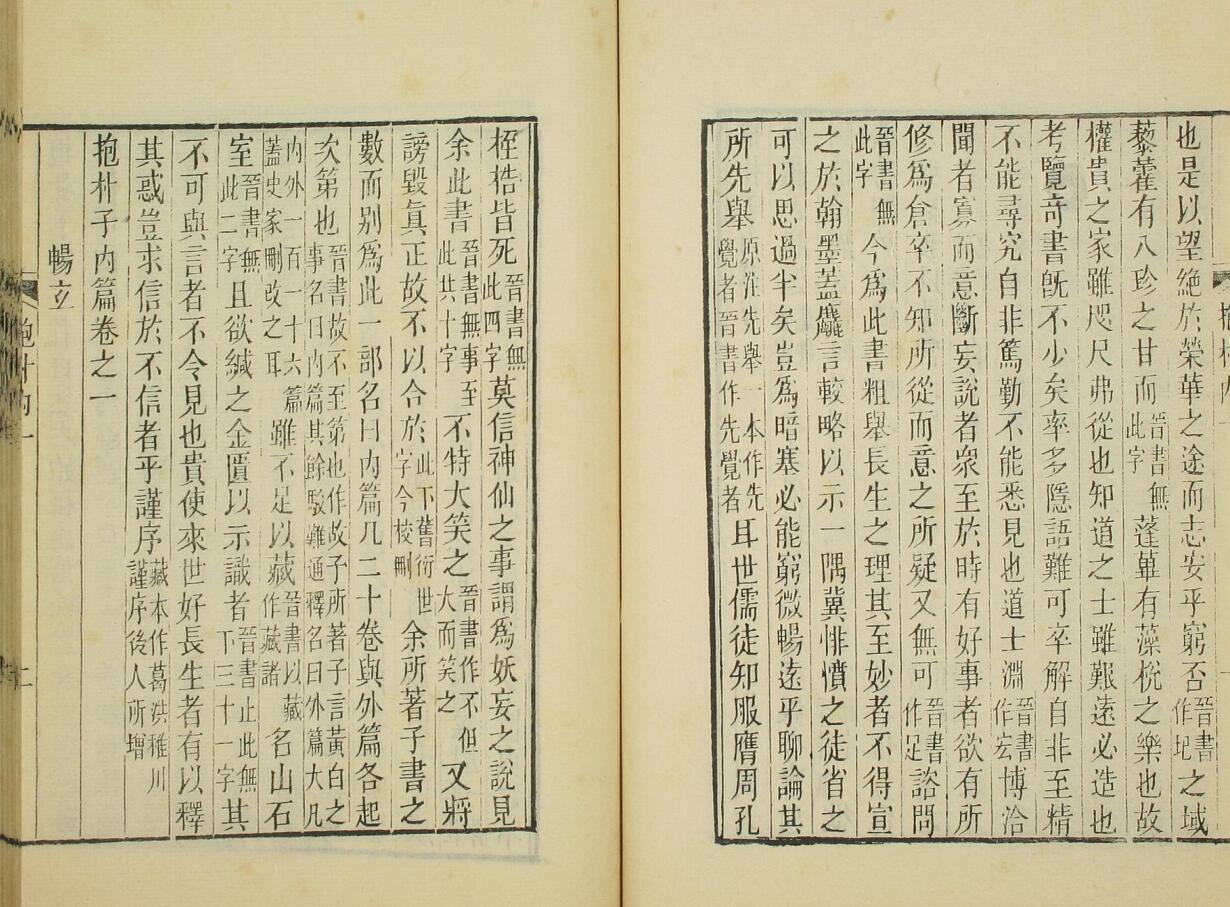 也是以望絶於榮華之途而志安乎窮否晉書作圯之域
藜藿有八珍之甘而晉書無此字蓬蓽有藻梲之樂也故
權貴之家雖咫尺弗從也知道之士雖艱遠必造也
考覽竒書旣不少矣率多隱語難可卒解自非至精
不能尋究自非篤勤不能悉見也道士淵晉書作宏博洽
聞者寡而意斷妄說者衆至於時有好事者欲有所
修爲倉卒不知所從而意之所疑又無可晉書作足諮問
晉書無此字今爲此書粗舉長生之理其至妙者不得宣
之於翰墨蓋麤言較略以示一隅冀悱憤之徒省之
可以思過半矣豈爲暗塞必能窮微暢遠乎聊論其
所先舉原注先舉一本作先覺者晉書作先覺者耳世儒徒知服膺周孔
桎梏皆死晉書無此四字莫信神仙之事謂爲妖妄之說見
余此書晉書無事至此共十字不特大笑之晉書作不但大而笑之又將
謗毀眞正故不以合於此下舊衍世字今校刪余所著子書之
數而别爲此一部名曰内篇凡二十卷與外篇各起
次第也晉書故不至第也作故子所著子言黃白之事名曰内篇其餘駮難通釋名曰外篇大凡
内外一百一十六篇蓋史家刪改之耳雖不足以藏晉書以藏作藏諸名山石
室晉書無此二字且欲緘之金匱以示識者晉書止此無下三十一字其
不可與言者不令見也貴使來世好長生者有以釋
其惑豈求信於不信者乎謹序藏本作葛洪稚川謹序後人所增
抱朴子内篇卷之一
暢玄